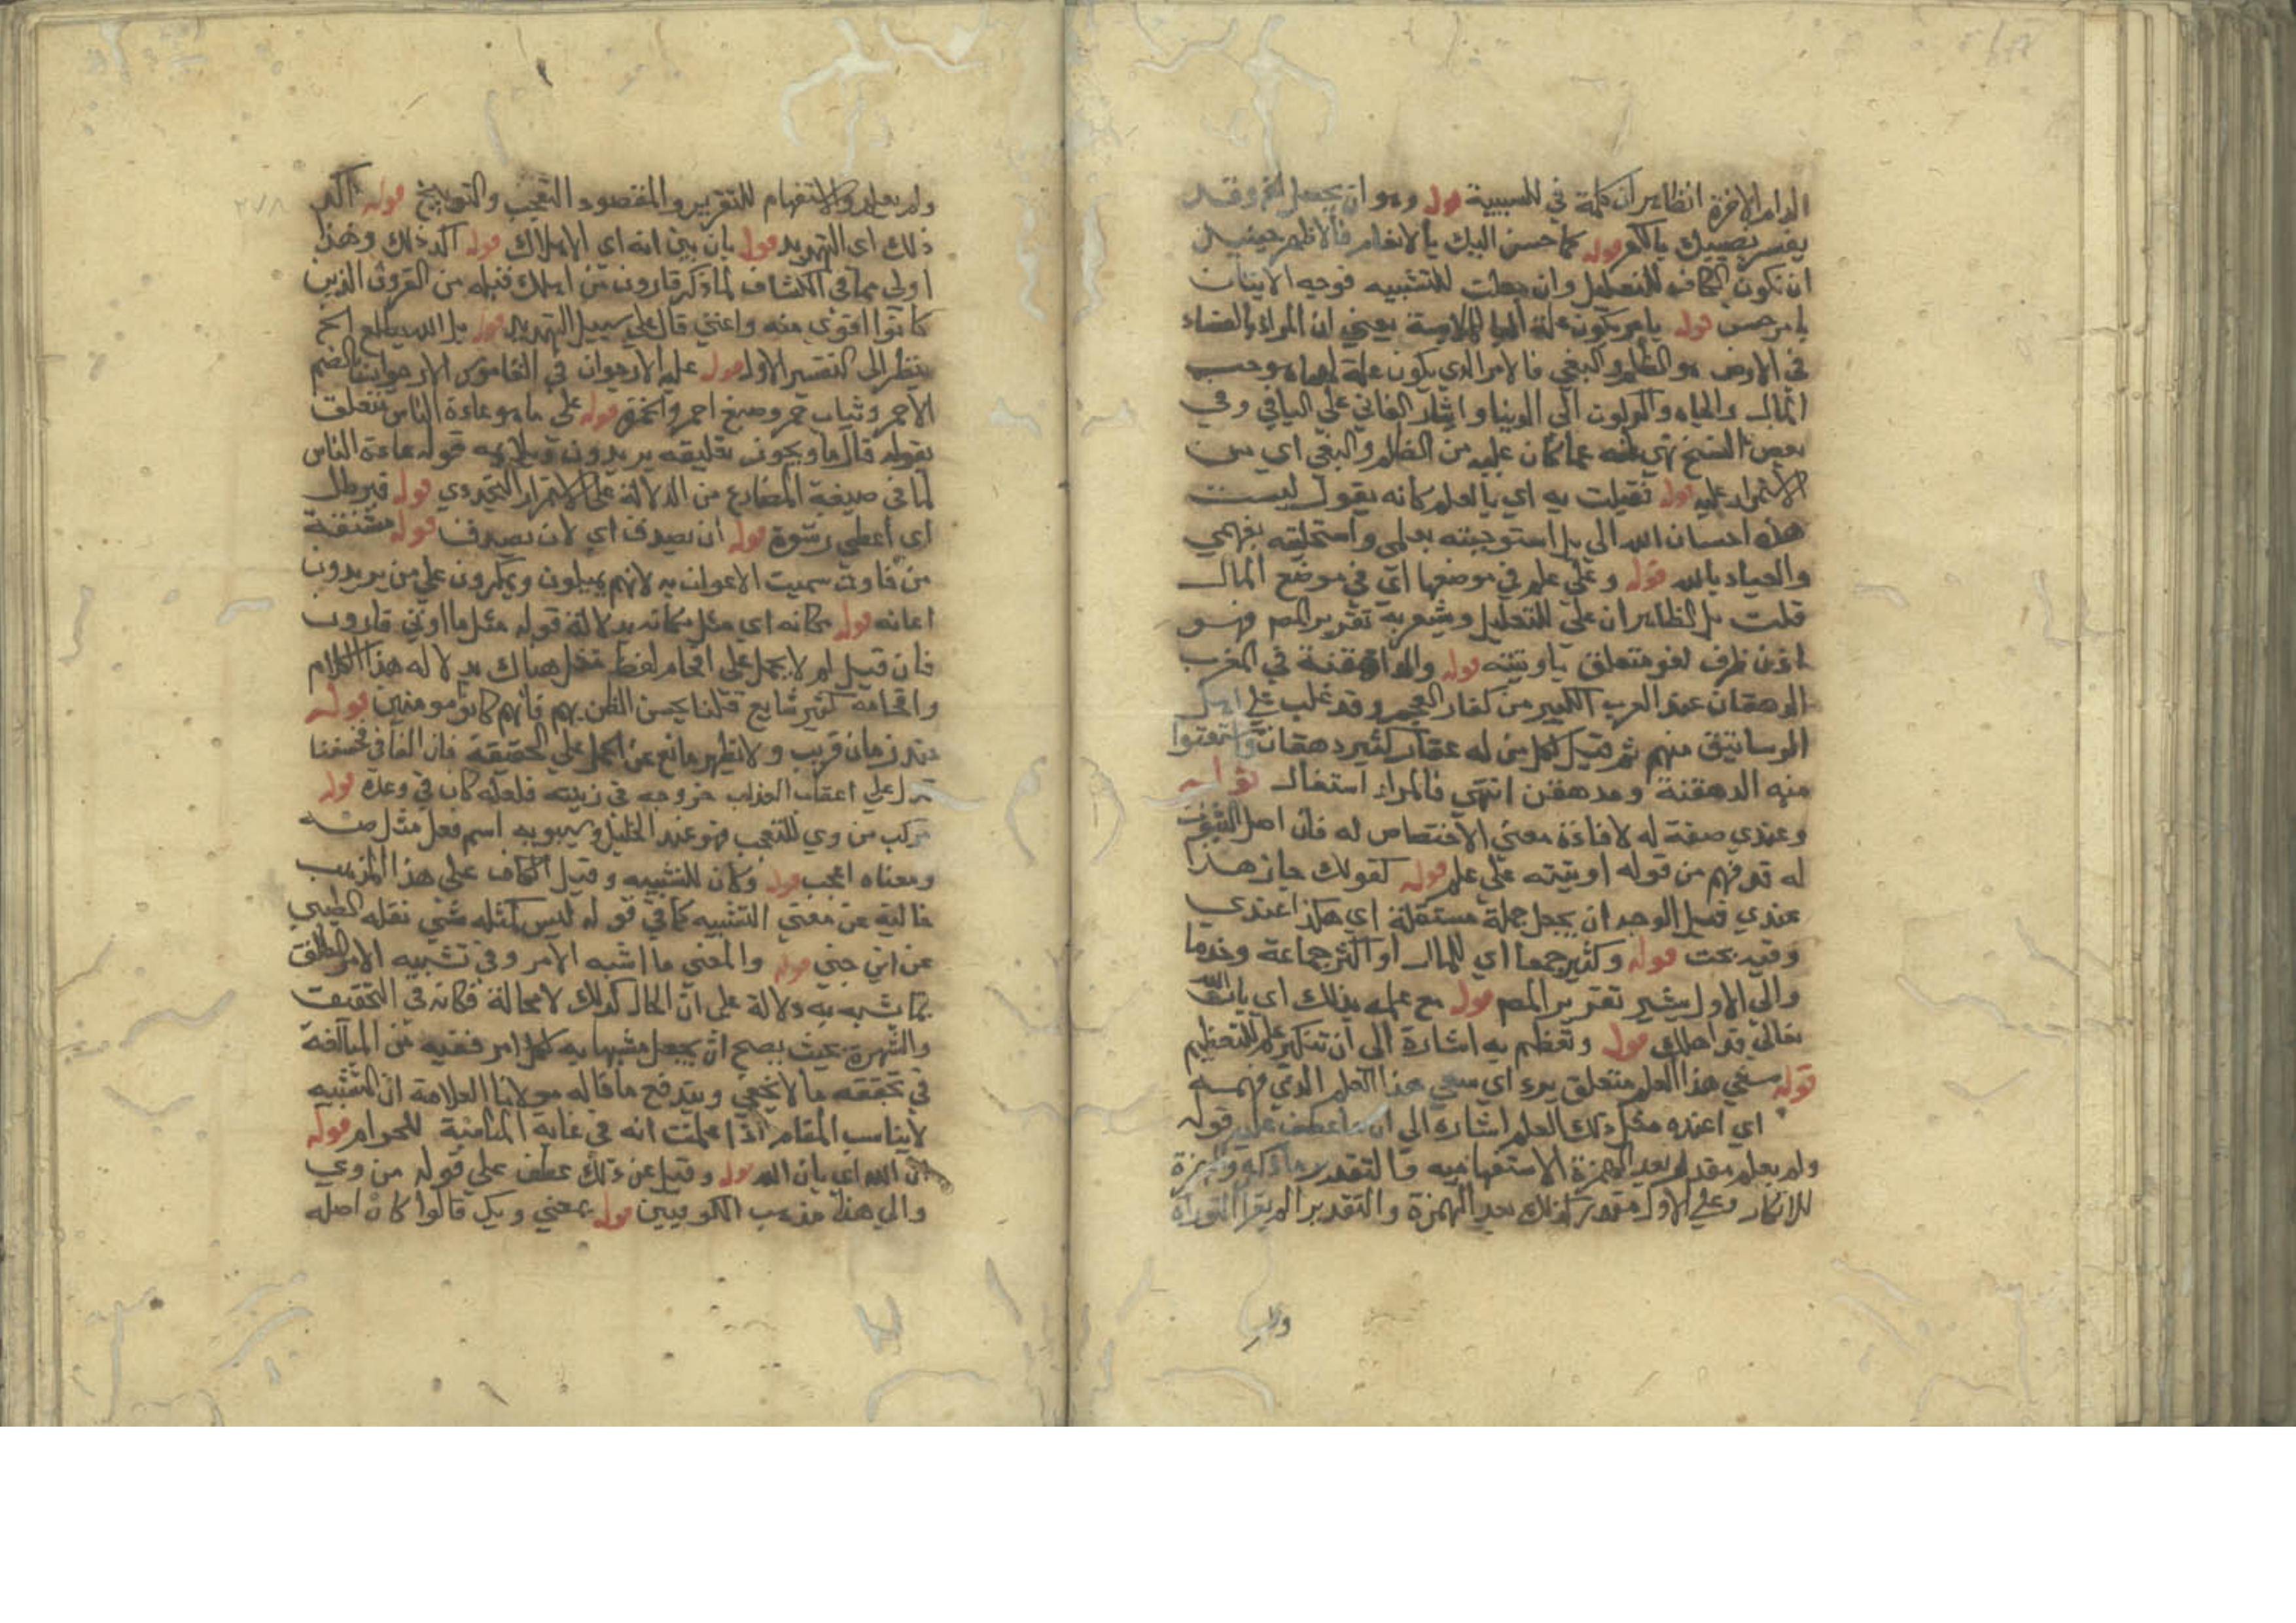 الدار الاخرة الظاهر ان كلمة في للسببية قوله وهو ان يجعل الخ وقد
يفسر نصيبك بالكفن قوله كما احسن اليك بالانعام فالاظهر حينئذ
ان تكون الكاف للتعليل وان جعلت للتشبيه فوجه الاتيان
بامر حسن قوله بامر يكون علة يعني ان المراد بالفساد
في الارض هو الظلم والبغي فالامر الذي يكون علة لهما هو حب
المال والجاه والركون الى الدنيا وايثار الفاني على الباقي وفي
بعض النسخ نهى عنه عما كان عليه من الظلم والبغي اي من
الاستمرار عليه قوله تفضلت به اي بالعلم كانه يقول ليست
هذه احسان الله الي بل استوجبته بعلمي واستحققته بفهمي
والعياذ بالله قوله وعلى علم في موضعها اي في موضع الحال
قلت بل الظاهر ان على للتعليل ويشعر به تقرير المص فهو
اذن ظرف لغو متعلق باوتيته قوله والدهقنة في المغرب
الدهقان عند العرب الكبير من كفار العجم وقد غلب على اهل
الرساتيق منهم ثم قيل لكل من له عقار كثير دهقان واشتقوا
منه الدهقنة وتدهقن انتهى فالمراد استغلال قوله
وعندي صفة له لافادة معنى الاختصاص له فان اصل الثبوت
له قد فهم من قوله اوتيته على علم قوله كقولك جاز هذا
عندي قيل الوجه ان يجعل جملة مستقلة اي هكذا عندي
وفيه بحث قوله وكثير جمعا اي للمال او اكثر جماعة وخدما
والى الاول يشير تقرير المص قوله مع علمه بذلك اي بان الله
تعالى قد اهلك قوله وتعظم به اشارة الى ان تنكير علم للتعظيم
قوله هذا العلم متعلق برد اي هذا العلم الذي
اي اعنده مثل ذلك العلم اشارة الى ان ما عطف عليه قوله
ولم يعلم مقدر بعد الهمزة الاستفهامية فالتقدير ما ذكره والهمزة
للانكار وعلى الاول مقدر كذلك بعد الهمزة والتقدير الم يقرا التوراة
ولم
٢٧٨
ولم يعلم والاستفهام للتقرير والمقصود التعجب والتوبيخ قوله اكد
ذلك اي التهديد قوله بان بين انه اي الاهلاك قوله اكد ذلك وهذا
اولى مما في الكشاف لما ذكر قارون من اهلك قبله من القرون الذين
كانوا اقوى منه واغنى قال على سبيل التهديد قوله بل الله يطلع الخ
ينظر الى التفسير الاول قوله عليه الارجوان في القاموس الارجوان بالضم
الاحمر وثياب حمر وصبغ احمر والحمرة قوله على ما هو عادة الناس متعلق
بقوله قالوا ويجوز تعليقه بيريدون ويلائمه قوله عادة الناس
لما في صيغة المضارع من الدلالة على الاستمرار التجددي قوله فبرطل
اي اعطى رشوة قوله ان يصدف اي لان يصدف قوله مشتقة
من فاوت سميت الاعوان به لانهم يميلون ويكرون على من يريدون
اعانه قوله مكانه اي مثل مكانه بدلالة قوله مثل ما اوتي قارون
فان قيل لم لا يحمل على اقحام لفظ مثل هناك بدلالة هذا الكلام
واقحامه كثير شايع قلنا يحسن الظن بهم فانهم كانوا مومنين قوله
منذ زمان قريب ولا يظهر مانع عن الحمل على الحقيقة فان الفا في فخسفنا
تدل على اعقاب العذاب خروجه في زينته فلعله كان في وعده قوله
مركب من وي للتعجب فهو عند الخليل وسيبويه اسم فعل مثل صه
ومعناه اعجب قوله وكان للتشبيه وقيل الكاف على هذا المذهب
خالية عن معنى التشبيه كما في قوله ليس كمثله شي نقله الطيبي
عن ابن جني قوله والمعنى ما اشبه الامر وفي تشبيه الامر المطلق
بما شبه به دلالة على ان الحال كذلك لا محالة فكانه في التحقيق
والشهرة بحيث يصح ان يجعل مشبها به كل امر ففيه من المبالغة
في تحققه ما لا يخفى ويندفع ما قاله مولانا العلامة ان التشبيه
لا يناسب المقام اذا علمت انه في غاية المناسبة للمرام قوله
ان الله اي بان الله قوله وقيل عن ذلك عطف على قوله من وي
والى هذا مذهب الكوفيين قوله بمعنى ويك قالوا كان اصله